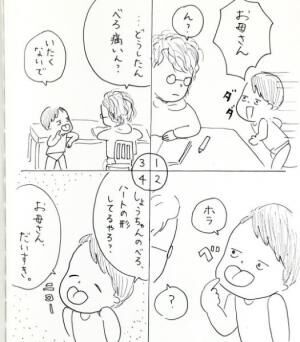 お母さん
ん?
ダダ
1
ホラ
べ
?
2
…どうしたん
べろ痛いん??
いたく
ないで
3
しょうちゃんのべろ、
ハートの形
してるやろ?
お母さん、
だいすき。
4